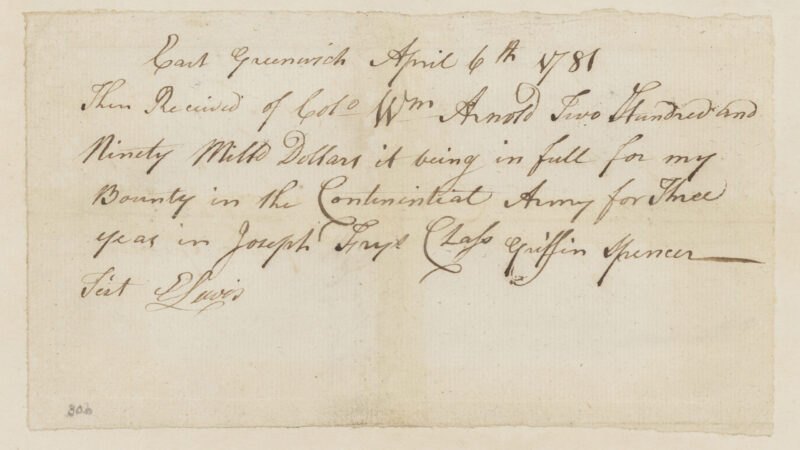 East Greenwich April 6th 1781
Then Received of Colo Wm Arnold Two Hundred and
Ninety Milld Dollars it being in full for my
Bounty in the Continintial Army for Three
year in Joseph Frys Class Griffin Spencer
Test E Lewis
300